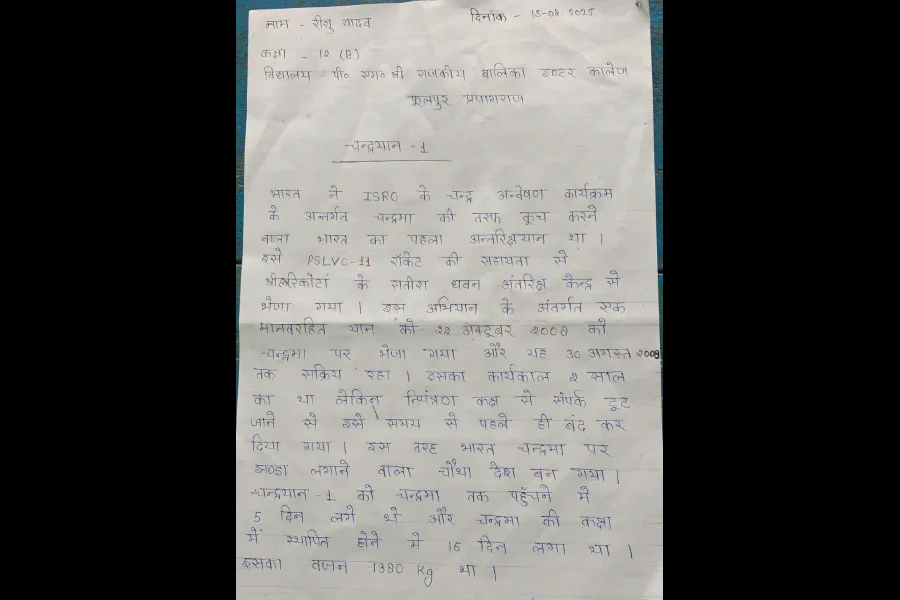 नाम - रीशू यादव
दिनांक - 15-08-2025
कक्षा - 12 (B)
विद्यालय - पी० एम० श्री राजकीय बालिका इण्टर कालेज
फूलपुर प्रयागराज
चन्द्रयान - 1
भारत ने ISRO के चन्द्र अन्वेषण कार्यक्रम
के अन्तर्गत चन्द्रमा की तरफ कूच करने
वाला भारत का पहला अन्तरिक्षयान था |
इसे PSLVC-11 रॉकेट की सहायता से
श्रीहरिकोटा के सतीश धवन अंतरिक्ष केन्द्र से
भेजा गया | इस अभियान के अंतर्गत एक
मानवरहित यान को 22 अक्टूबर 2008 को
चन्द्रमा पर भेजा गया और यह 30 अगस्त 2009
तक सक्रिय रहा | इसका कार्यकाल 2 साल
का था लेकिन नियंत्रण कक्ष से संपर्क टूट
जाने से इसे समय से पहले ही बंद कर
दिया गया | इस तरह भारत चन्द्रमा पर
झण्डा लगाने वाला चौथा देश बन गया |
चन्द्रयान -1 को चन्द्रमा तक पहुँचने में
5 दिन लगे थे और चन्द्रमा की कक्षा
में स्थापित होने में 15 दिन लगा था |
इसका वजन 1380 Kg था |